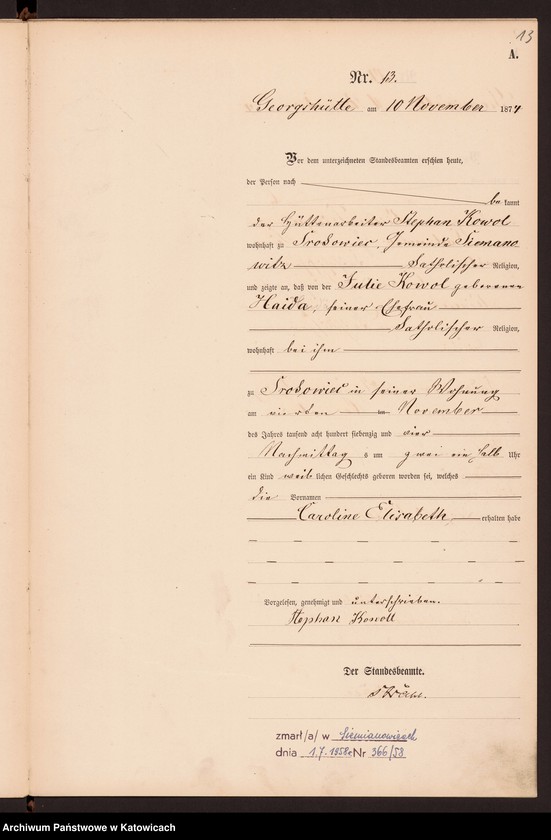 13
A.
Nr. 13.
Georgshütte am 10 November 1874
Vor dem unterzeichneten Standesbeamten erschien heute,
der Person nach
be kannt
der Hüttenarbeiter Stephan Kowol
wohnhaft zu Srokowiec, Gemeinde Siemano
witz katholischer Religion,
und zeigte an, daß von der Julie Kowol geborenen
Haida, seiner Ehefrau
katholischer Religion,
wohnhaft bei ihm
zu Srokowiec in seiner Wohnung
am vierten November
des Jahrs tausend acht hundert siebenzig und vier
Nachmittag s um zwei ein halb Uhr
ein Kind weib lichen Geschlechts geboren worden sei, welches
die Vornamen
Caroline Elisabeth erhalten habe
Vorgelesen, genehmigt und unterschrieben.
Stephan Kowoll
Der Standesbeamte.
zmarł/a/ w Siemianowicach
dnia 1.7.1958r Nr 366/58
Archiwum Państwowe w Katowicach